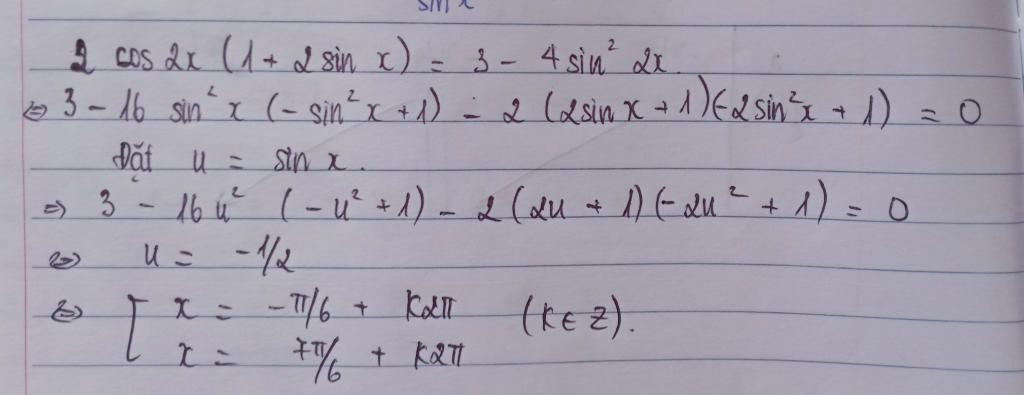 sin x
2 cos 2x (1 + 2 sin x) = 3 - 4 sin² 2x
⇔ 3 - 16 sin² x (- sin² x + 1) - 2 (2 sin x + 1)(-2 sin² x + 1) = 0
Đặt u = sin x.
⇒ 3 - 16u² (-u² + 1) - 2 (2u + 1)(-2u² + 1) = 0
⇔ u = -1/2
⇔ [ x = -π/6 + k2π (k ∈ Z).
x = 7π/6 + k2π